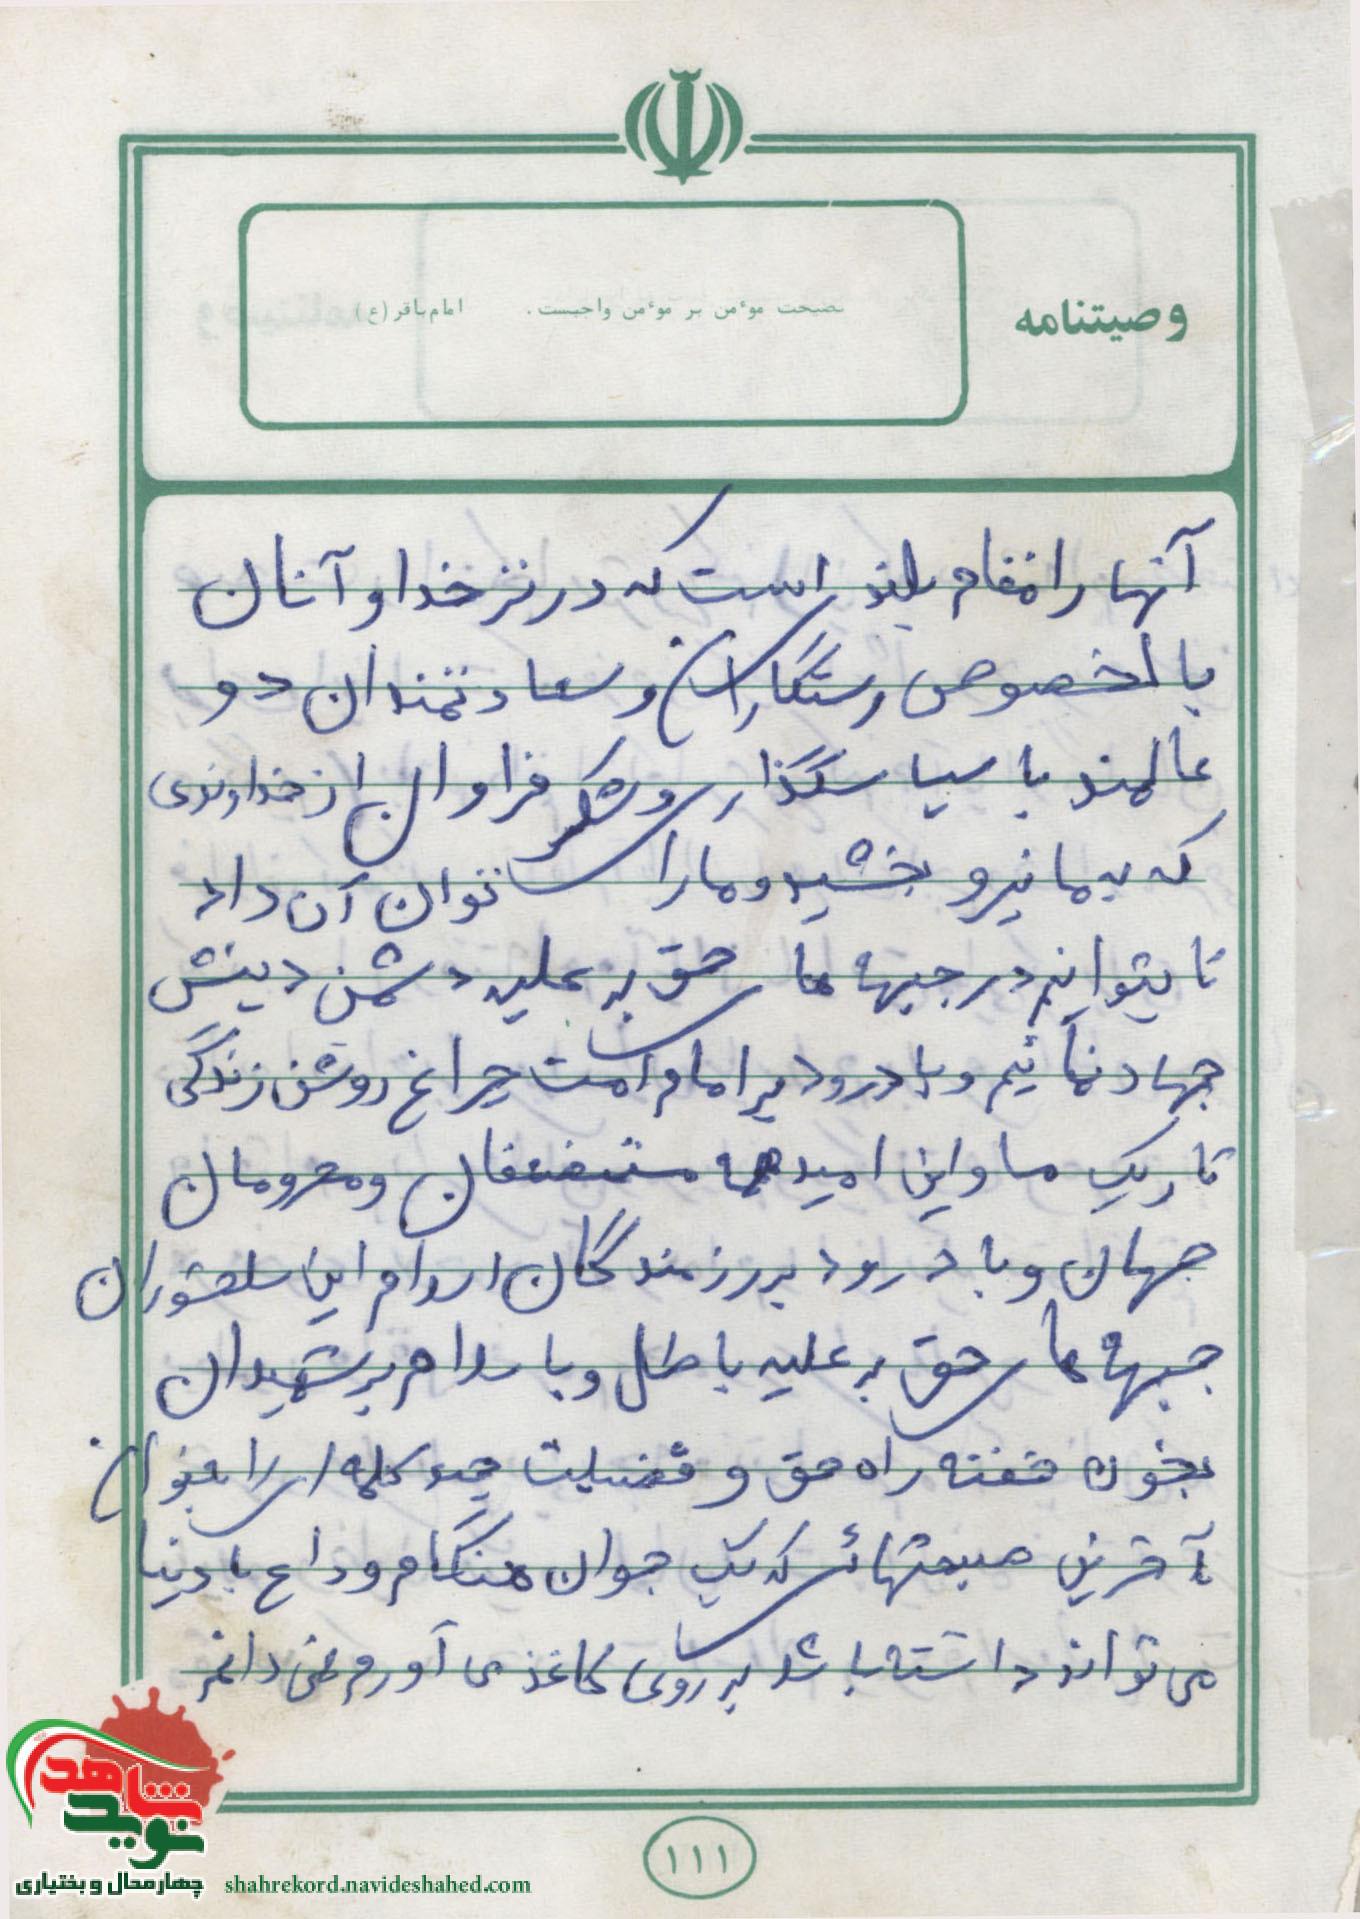 وصیتنامه
نصیحت موٴمن بر موٴمن واجبست. امام باقر (ع)
آنها را مقام بلند است که در نزد خدا و آنان
بالخصوص رستگاران و سعادتمندان دو
عالمند با سپاسگذاری و شکر فراوان از خداوندی
که به ما نیرو بخشید و ما را توان آن داد
تا بتوانیم در جبهه های حق به علیه دشمن دینش
جهاد نمائیم و با درود بر امام امت چراغ روشن زندگی
تاریک ما و این امید همه مستضعفان و محرومان
جهان و با درود بر رزمندگان اسلام این سلحشوران
جبهه های حق به علیه باطل و با سلام بر شهیدان
بخون خفته راه حق و فضیلت چند کلمه ای را بعنوان
آخرین صحبتهائی که یک جوان هنگام وداع با دنیا
می تواند داشته باشد بر روی کاغذ می آورم نمی دانم
۱۱۱
نوید شاهد
چهارمحال و بختیاری
shahrekord.navideshahed.com